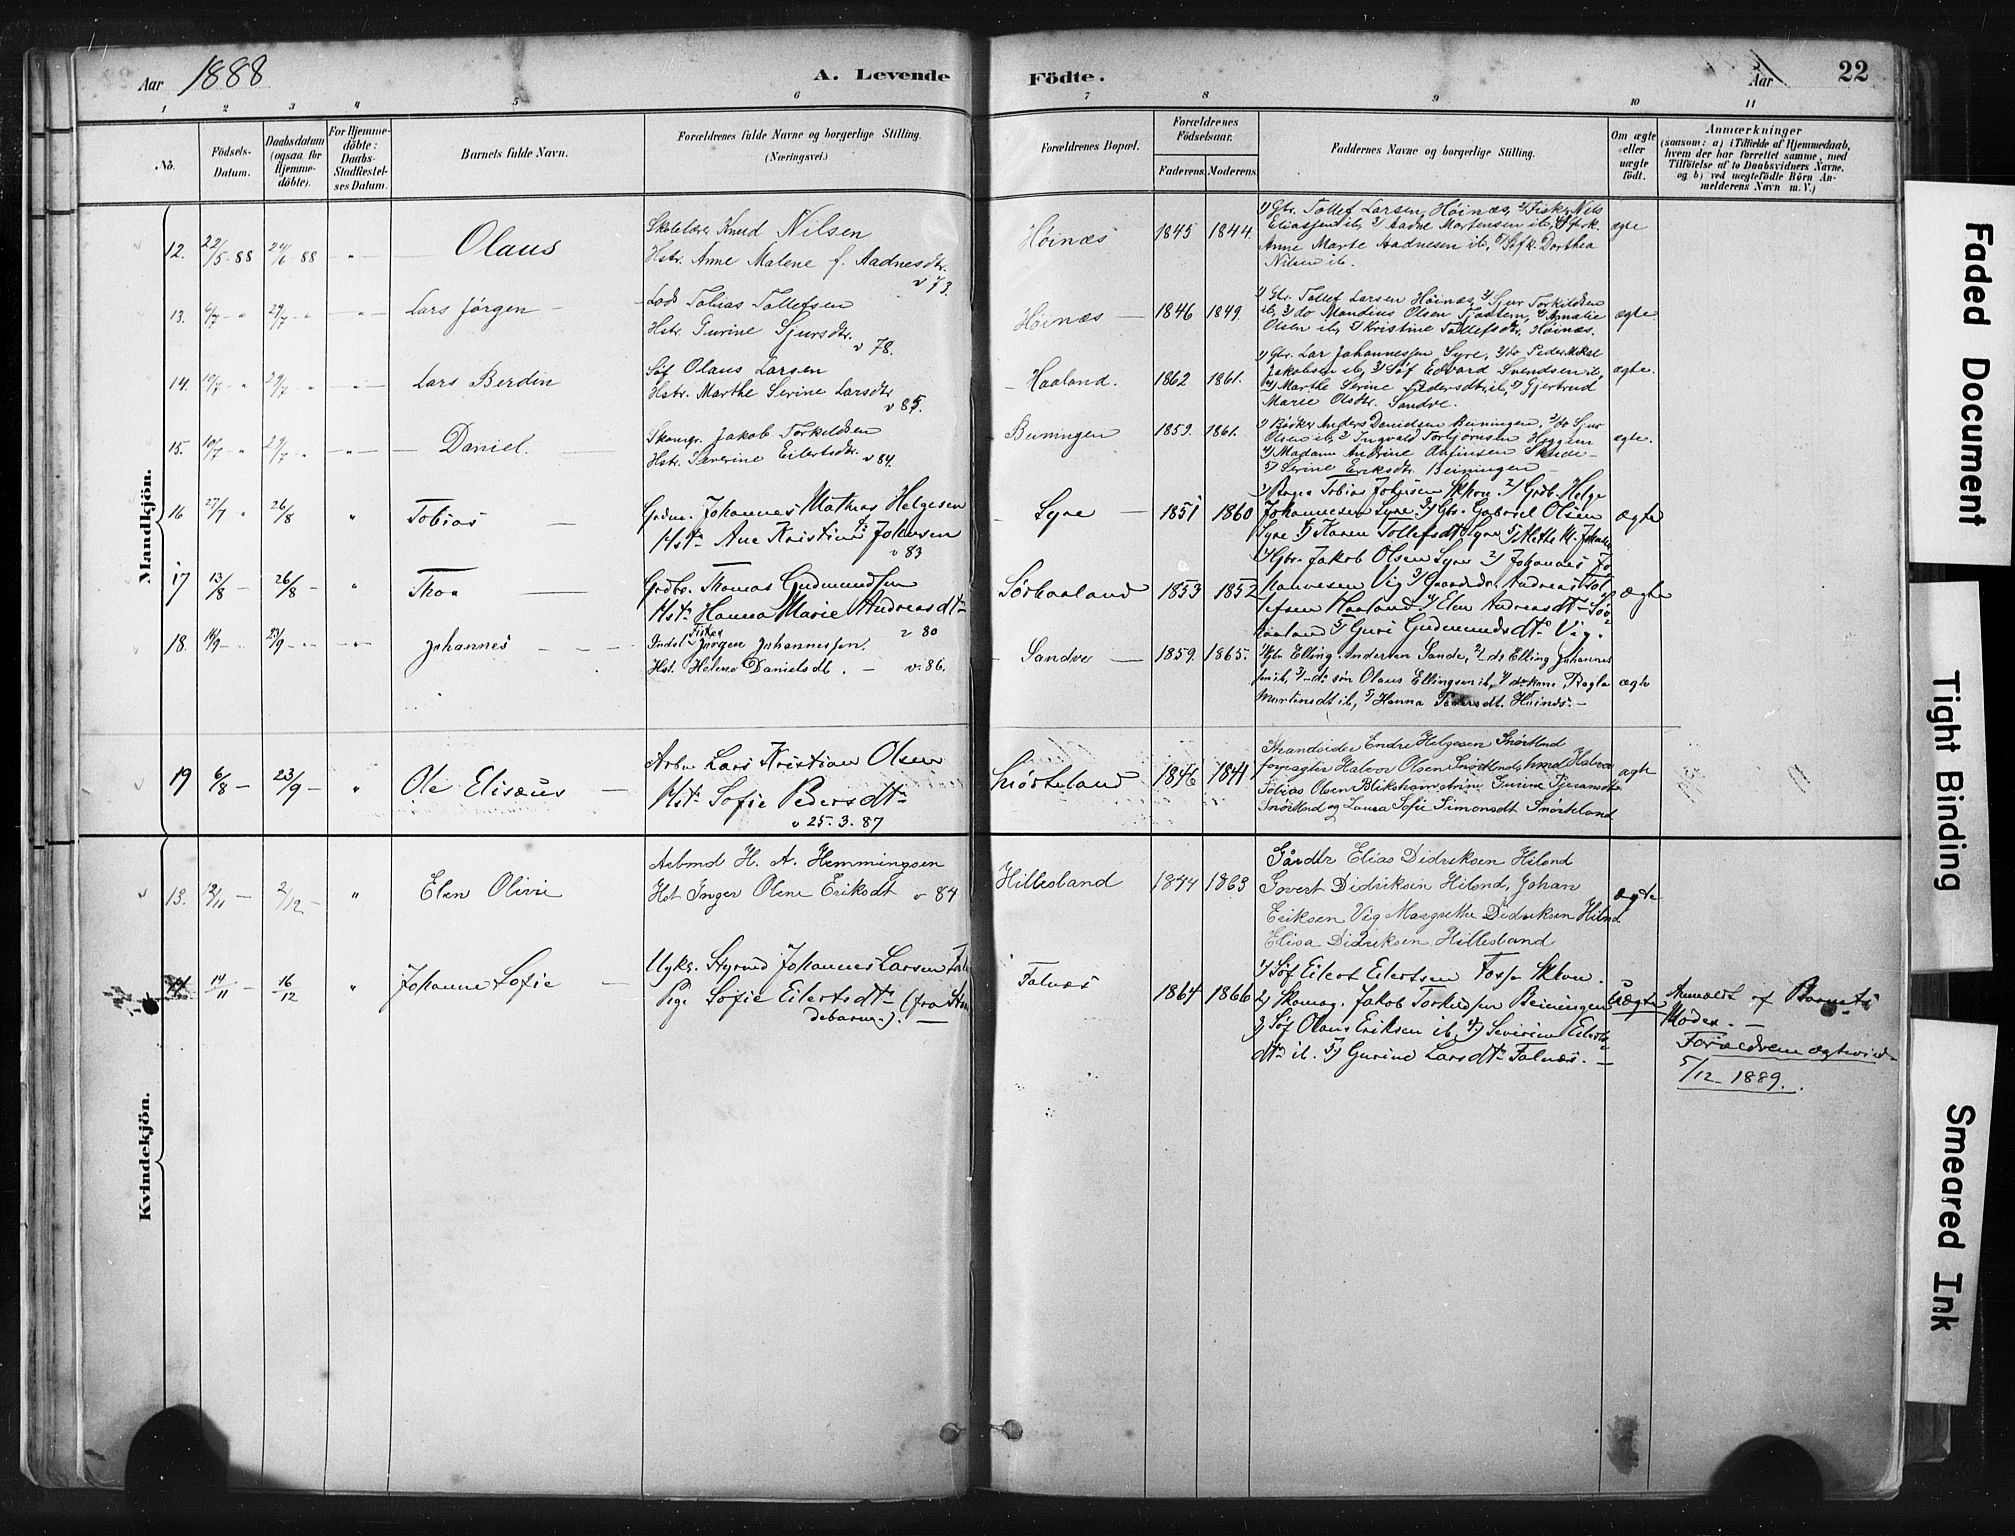 Aar 1888
A. Levende Födte.
Aar 22
1 2 3 4 5 6 7 8 9 10 11
No.
Fødsels-
Datum.
Daabsdatum
(ogsaa for
Hjemme-
døbte).
For Hjemme-
døbte:
Daabs-
Stadfestel-
ses Datum.
Barnets fulde Navn.
Forældrenes fulde Navne og borgerlige Stilling.
(Næringsvei.)
Forældrenes Bopæl.
Forældrenes
Fødselsaar.
Faderens. Moderens.
Faddernes Navne og borgerlige Stilling.
Om ægte
eller
uægte
født.
Anmærkninger
(saasom: a) i Tilfælde af Hjemmedaab,
hvem der har forrettet samme, med
Tilføielse af to Daabsvidners Navne,
og b) ved uægtefødte Børn An-
melderens Navn m. V.)
Mandkjön.
12. 22/5 88 24/6 88 Olaus
Skolelærer Knud Nilsen
Hstr. Anne Malene f. Aadnesdtr.
v 73.
Höinæs 1845 1844
1) Gbr. Tollef Larsen Höinæs, 2) Fisk. Nils
Eliassen ib, 3) Aadne Mortensen ib,
Anne Marte Aadnesen ib, Dorthea
Nilsen ib.
ægte
13. 6/7 29/7 Lars Jörgen
Lods Tobias Tollefsen
Hstr. Gurine Sjursdtr.
v 78.
Höinæs 1846 1849
1) Gbr. Tollef Larsen Höinæs, 2) Sjur Torkildsen
ib, 3) do Mandius Olsen, 4) Amalie
Olsen ib, 5) Kristine Tollefsdtr. Höinæs.
ægte
14. 29/7 Lars Berdin
Söf Olaus Larsen
Hstr. Marthe Serine Larsdtr
v 85.
Haaland. 1862 1861.
1) Gbr. Lar Johannessen Syre, 2) do Peder Mikal
Jakobsen ib, 3) Söf Edvard Svendsen ib,
4) Marthe Serine Pedersdtr ib, 5) Gjertrud
Marie Olsdtr. Sandve.
ægte.
15. 10/7 29/7 Daniel
Skomgr. Jakob Torkildsen
Hstr. Severine Eilertsdtr. v 84.
Beiningen 1859. 1861.
1) Anders Danielsen Beiningen, 2) do Sjur
Olsen ib, 3) Ingvald Torbjörnsen
4) Madam Andrine
5) Serine Eriksdtr. Beiningen
ægte.
16 27/7 26/8 Tobias
Johannes Mathias Helgesen
Hst. Ane Kristine Johnsen
v 83
Syre 1851 1860
1) Tobias Johnsen 2) Helge
Johannesen Syre 3) Gbr. Gabriel Olsen
Syre 4) Karen Tollefsdt Syre 5) Mette
ægte
17 13/8 26/8 Thoa
Grdbr. Thomas Gudmundsen
Hst. Hanna Marie Andreasdt
v 80
Sörhaaland 1853 1852
1) Gbr. Jakob Olsen Syre 2) Johannes Jo
hannesen Vig 3) Andreas
Haaland 4) Elen Andreasdt Sör
haaland 5) Guri Gudmundsdt Vig.
ægte
18. 14/9 23/9 Johannes
Indst. Fisker Jörgen Johannessen.
Hst. Helene Danielsdt. v. 86.
Sandve 1859. 1865.
Gbr. Elling Andersen Sande, 2) do Elling Johannes
sen ib, 3) do sön Olaus Ellingsen ib, 4) do kone Ragla
Martinsdt ib, 5) Hanna Höinæs.
ægte
19 6/8 23/9 Ole Elisæus
Lars Kristian Olsen
Hst. Sofie Pedersdt
v 25. 3. 87
Snörteland 1846 1841
Strandsider Endre Helgesen
Halvor Olsen
Tobias Olsen Gurine
og Laura Sofie Simonsdt Snörteland
ægte
Kvindekjön.
13. 2/12 Elen Olivie
Arbmd H. A. Hemmingsen
Hst Inger Olene Eriksdt v 84
Hillesland 1844 1863
Gårdbr Elias Didriksen Hilsnd
Govert Didriksen Hilsnd, Johan
Eriksen Vig Margrethe Didriksen Hilsnd
Elisa Didriksen Hillesland
ægte
14 14/11 16/12 Johanne Sofie
Ugkr. Styrmd Johannes Larsen
Pige Sofie Eilertsdt (fra
debarm.).
Falnæs 1864 1866
1) Söf Eilert Eilertsen
2) Skomag. Jakob Torkildsen Beiningen
3) Söf Olaus Eriksen ib, 4) Severine Eilerts
dt. ib. 5) Gurine Larsdt. Falnæs.
Uægte
Anmeldt af Barnets
Moder.
Forældrene ægteviet
5/12 1889.
Faded Document
Tight Binding
Smeared Ink